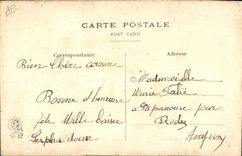 CARTE POSTALE
POST CARD
Correspondance
Adresse
Bien Chère cousine
Bonne et heureuse
fête Mille Baisers
les plus doux
Mademoiselle
Marie
par
Rodez
Aveyron